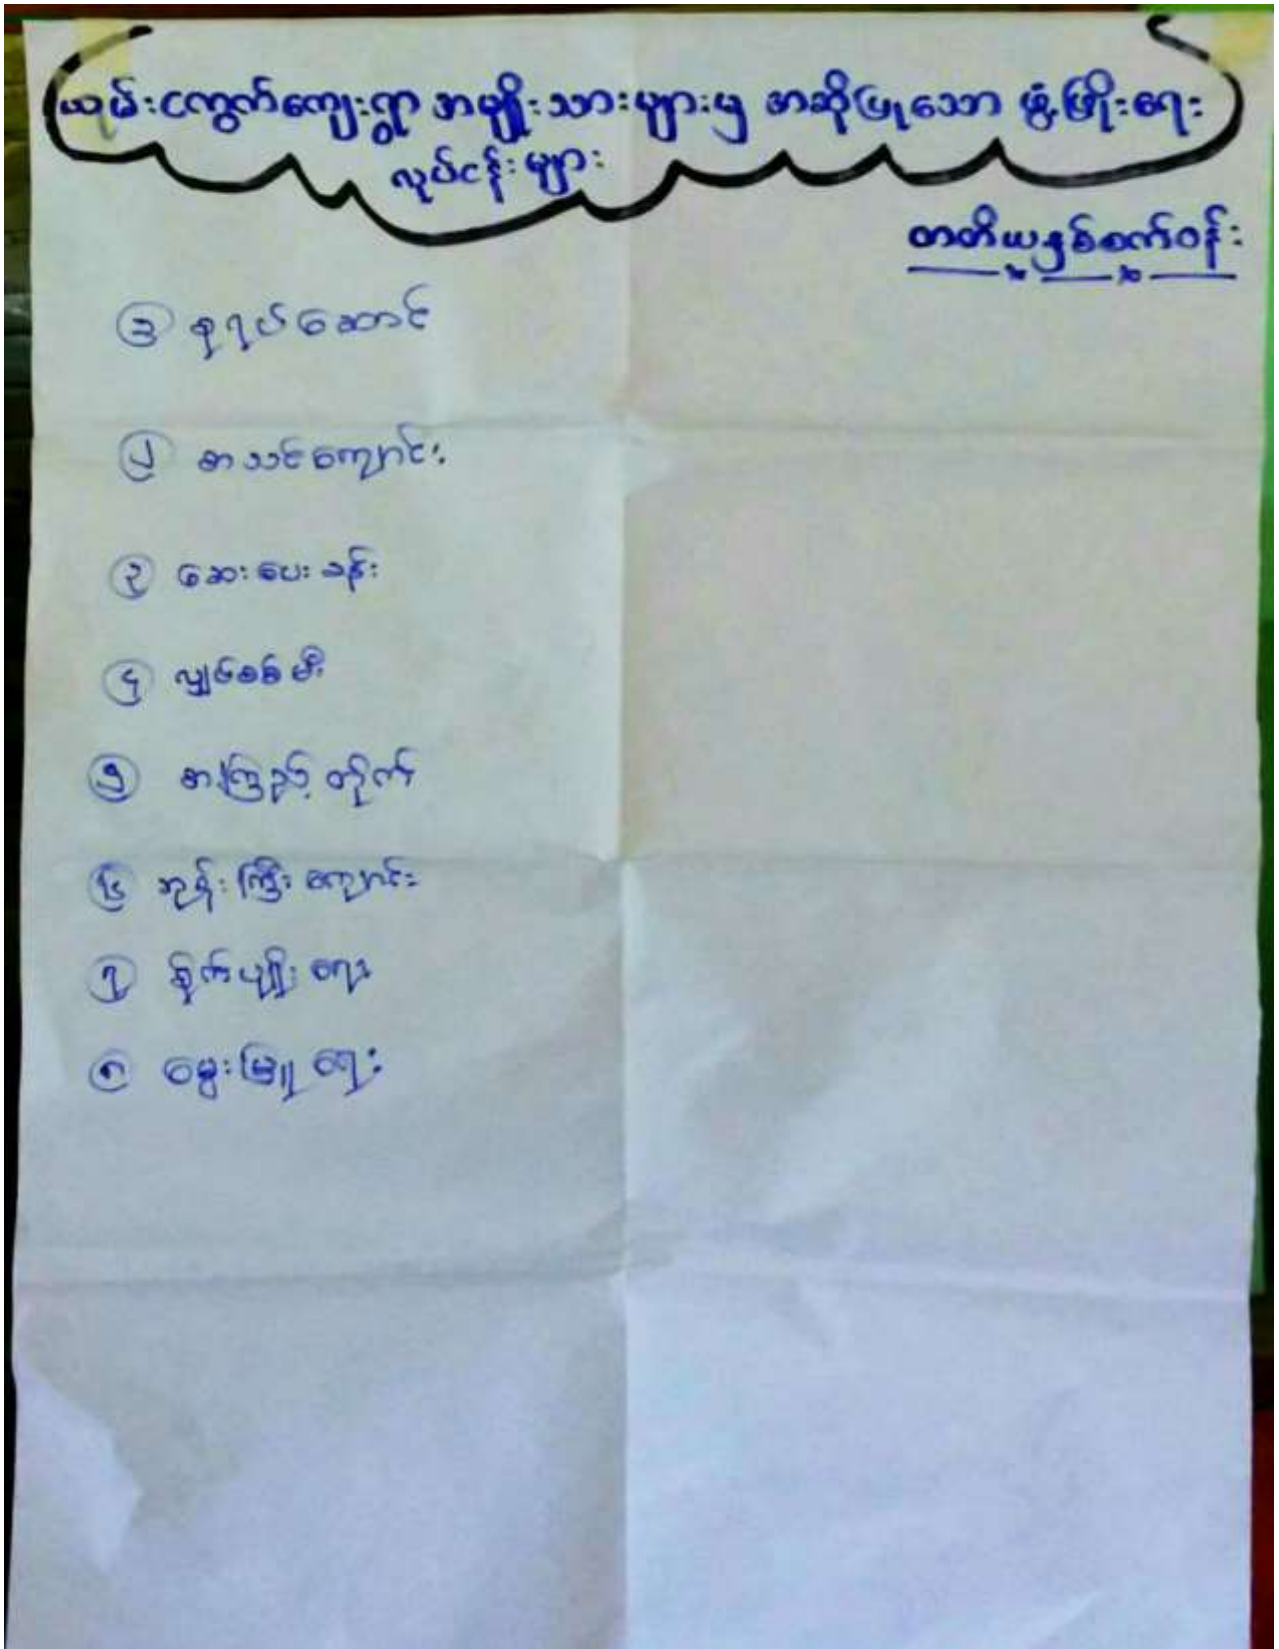 ယုမ်းငကွက်ကျေးရွာ အမျိုးသားများမှ အဆိုပြုသော ဖွံ့ဖြိုးရေး
လုပ်ငန်းများ
တတိယနှစ်စက်ဝန်း
၁ စုရပ်ဆောင်
၂ စာသင်ကျောင်း
၃ ဆေးပေးခန်း
၄ လျှပ်စစ်မီး
၅ စာကြည့်တိုက်
၆ ဘုန်းကြီးကျောင်း
၇ စိုက်ပျိုးရေး
၈ မွေးမြူရေး